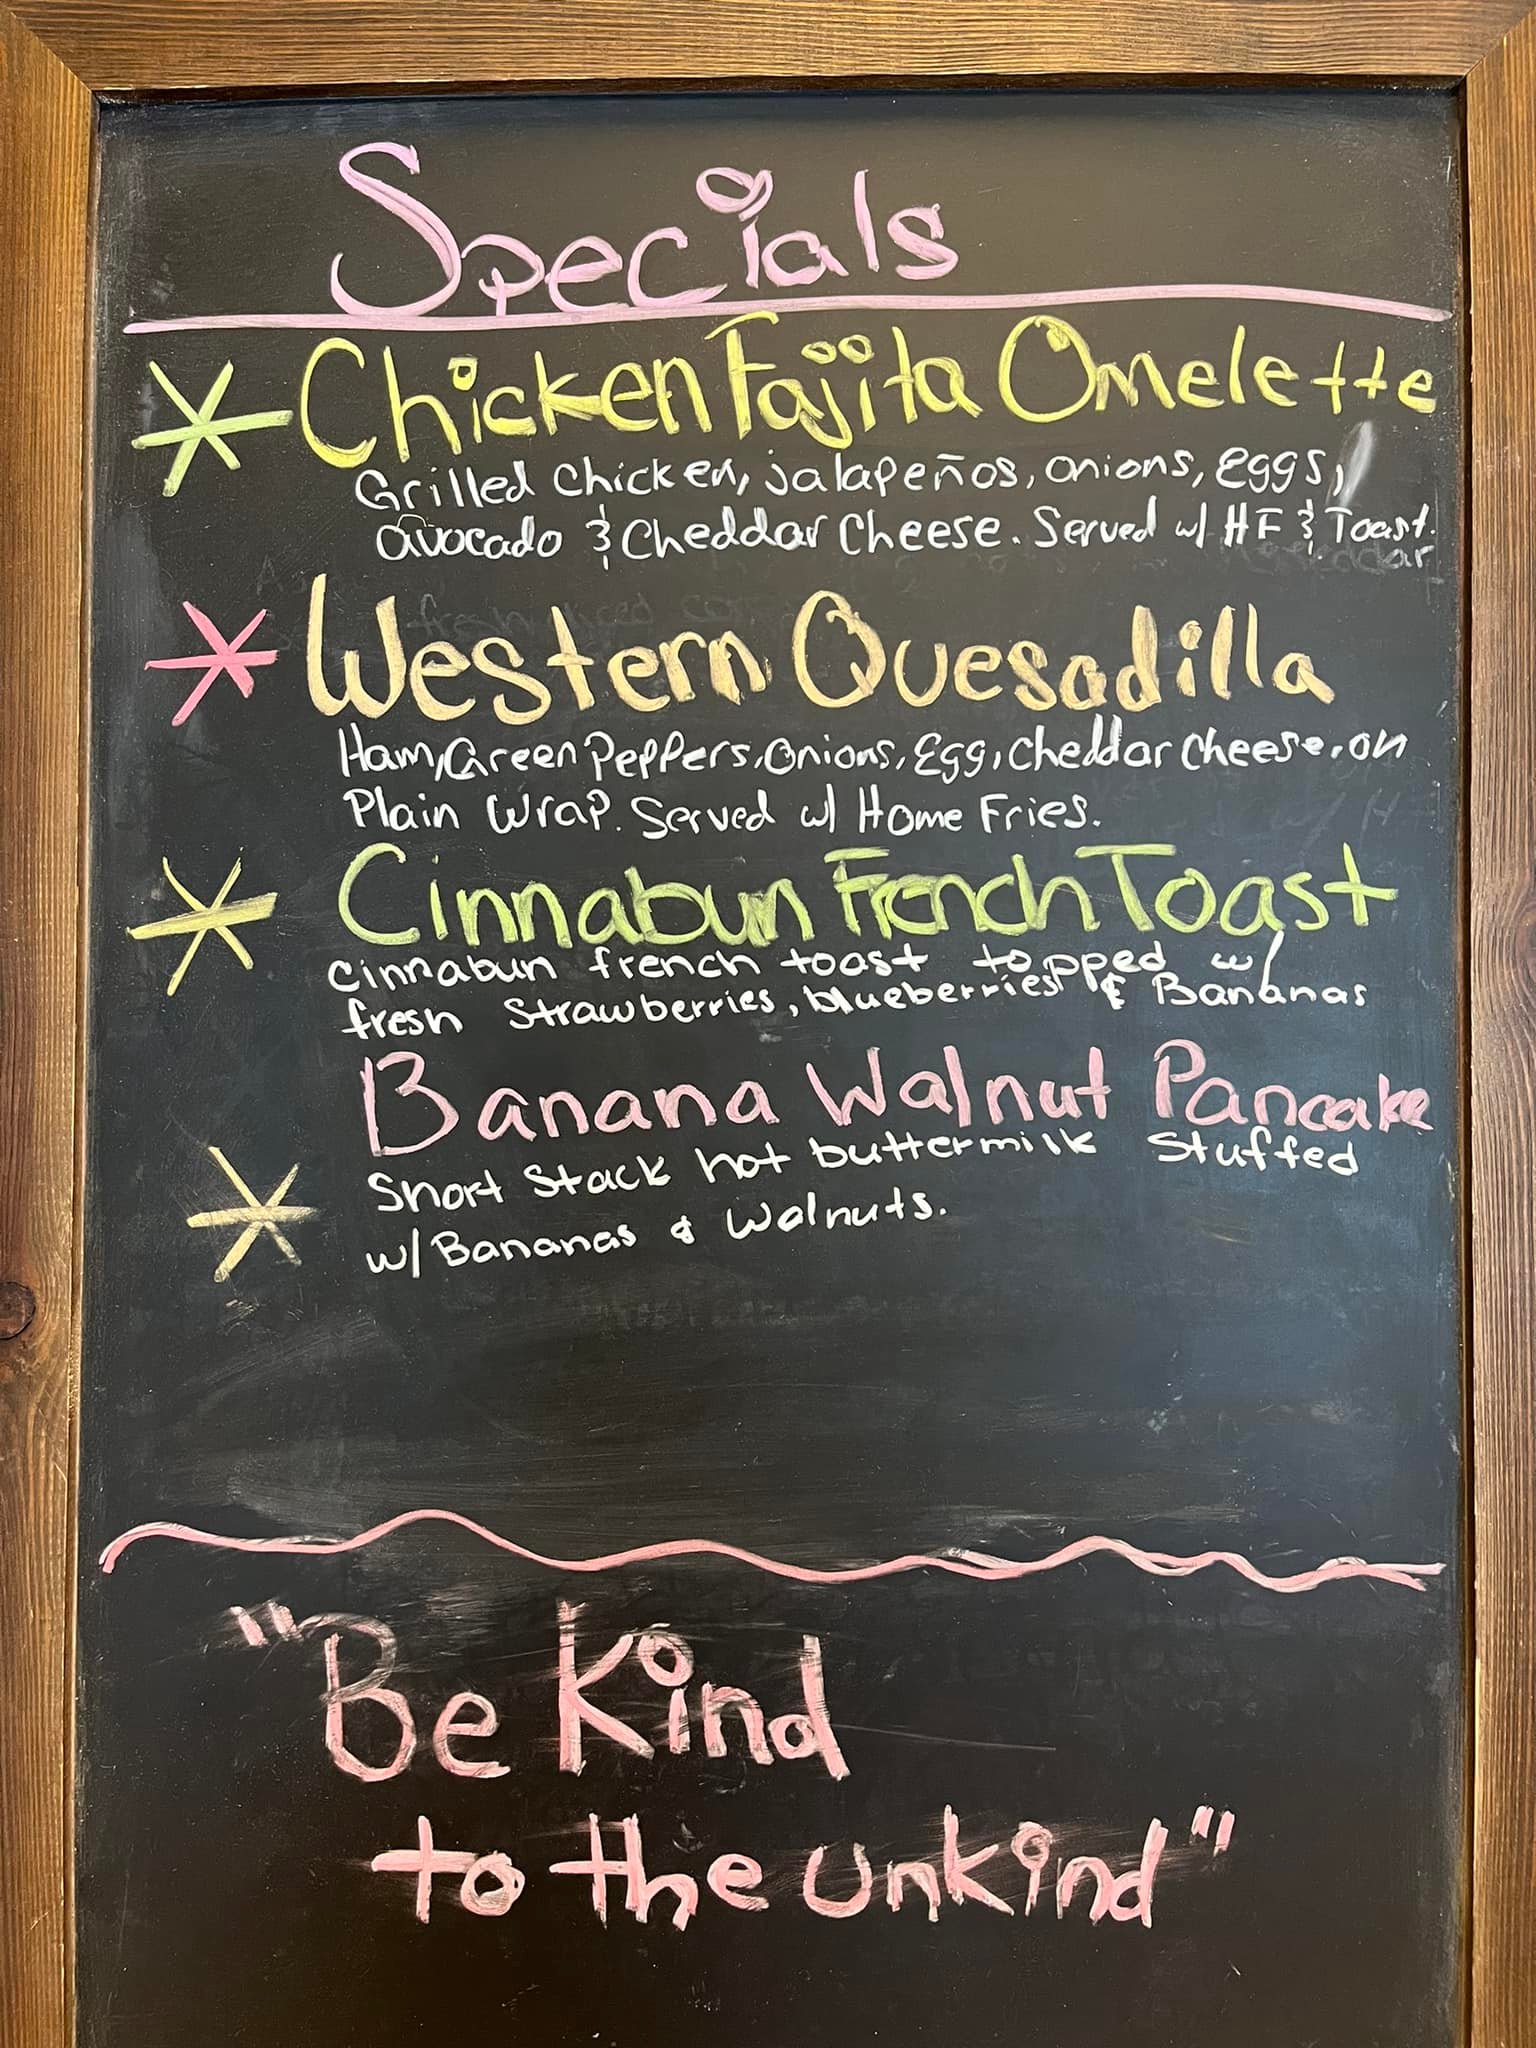 Specials
Chicken Fajita Omelette
Grilled chicken, jalapeños, onions, eggs,
avocado & Cheddar Cheese. Served w/ HF & Toast.
Western Quesadilla
Ham, Green Peppers, Onions, Egg, Cheddar Cheese, on
Plain Wrap. Served w/ Home Fries.
Cinnabun French Toast
Cinnabun french toast topped w/
fresh Strawberries, blueberries & Bananas
Banana Walnut Pancake
Short Stack hot buttermilk Stuffed
w/ Bananas & Walnuts.
"Be Kind
to the unkind"